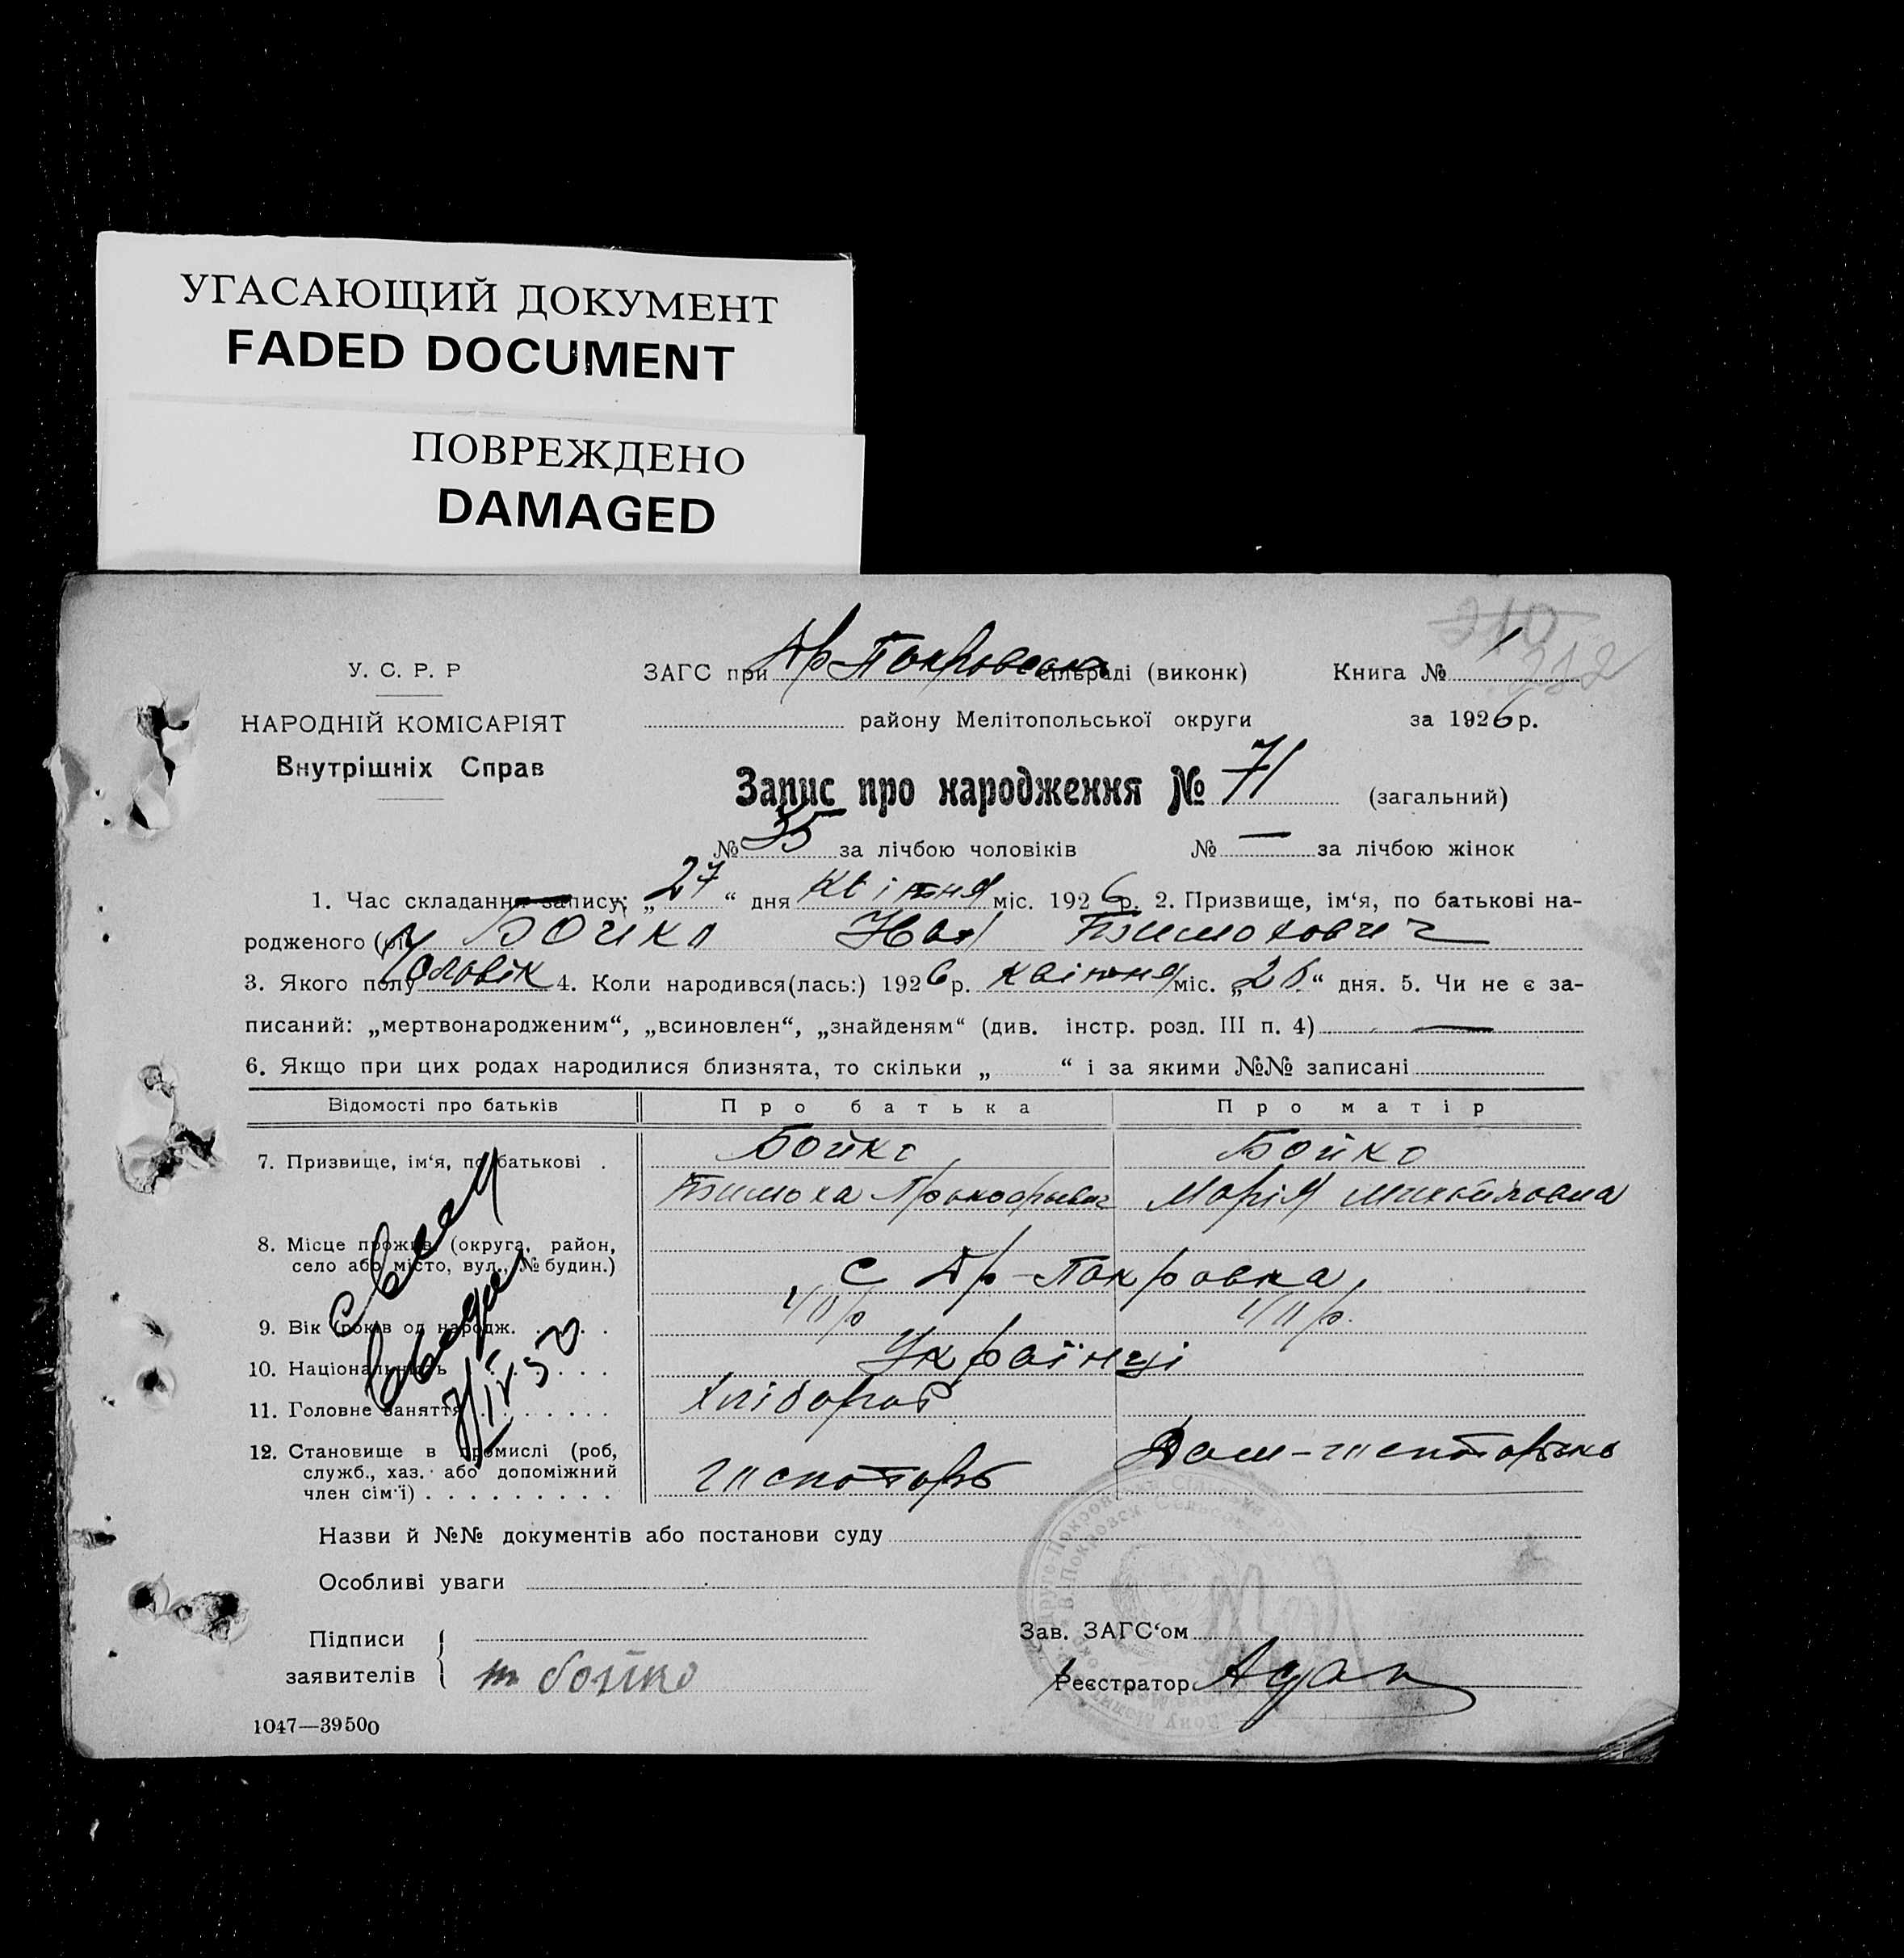 УГАСАЮЩИЙ ДОКУМЕНТ
FADED DOCUMENT
ПОВРЕЖДЕНО
DAMAGED
310
212
У. С. Р. Р
НАРОДНІЙ КОМІСАРІЯТ
Внутрішніх Справ
ЗАГС при Др Покровськ сільраді (виконк) Книга № 1
району Мелітопольської округи за 1926 р.
Запис про народження № 71 (загальний)
№ 35 за лічбою чоловіків № — за лічбою жінок
1. Час складання запису: „ 27 “ дня квітня міс. 1926 р. 2. Призвище, ім‘я, по батькові на-
родженого (ої) Бойко Іван Тимохович
3. Якого полу Чоловік 4. Коли народився(лась:) 1926 р. квітня міс. „ “ дня. 5. Чи не є за-
писаний: „мертвонародженим“, „всиновлен“, „знайденям“ (див. інстр. розд. III п. 4) —
6. Якщо при цих родах народилися близнята, то скільки „ “ і за якими №№ записані
Відомості про батьків Про батька Про матір
7. Призвище, ім‘я, по батькові . Бойко Бойко
Тимоха Прокофьевич Марія Михайловна
8. Місце прожив. (округа, район,
село або місто, вул., № будин.) с Др-Покровка
9. Вік (років од народж. . . . .
10. Національність . . . . . Українці
11. Головне заняття . . . . . . . Хлібороб
12. Становище в промислі (роб,
служб., хаз. або допоміжний
член сім‘ї) . . . . . . . . . .
Назви й №№ документів або постанови суду
Особливі уваги
Підписи
заявителів т бойко
Зав. ЗАГС‘ом
Реєстратор
1047—39500